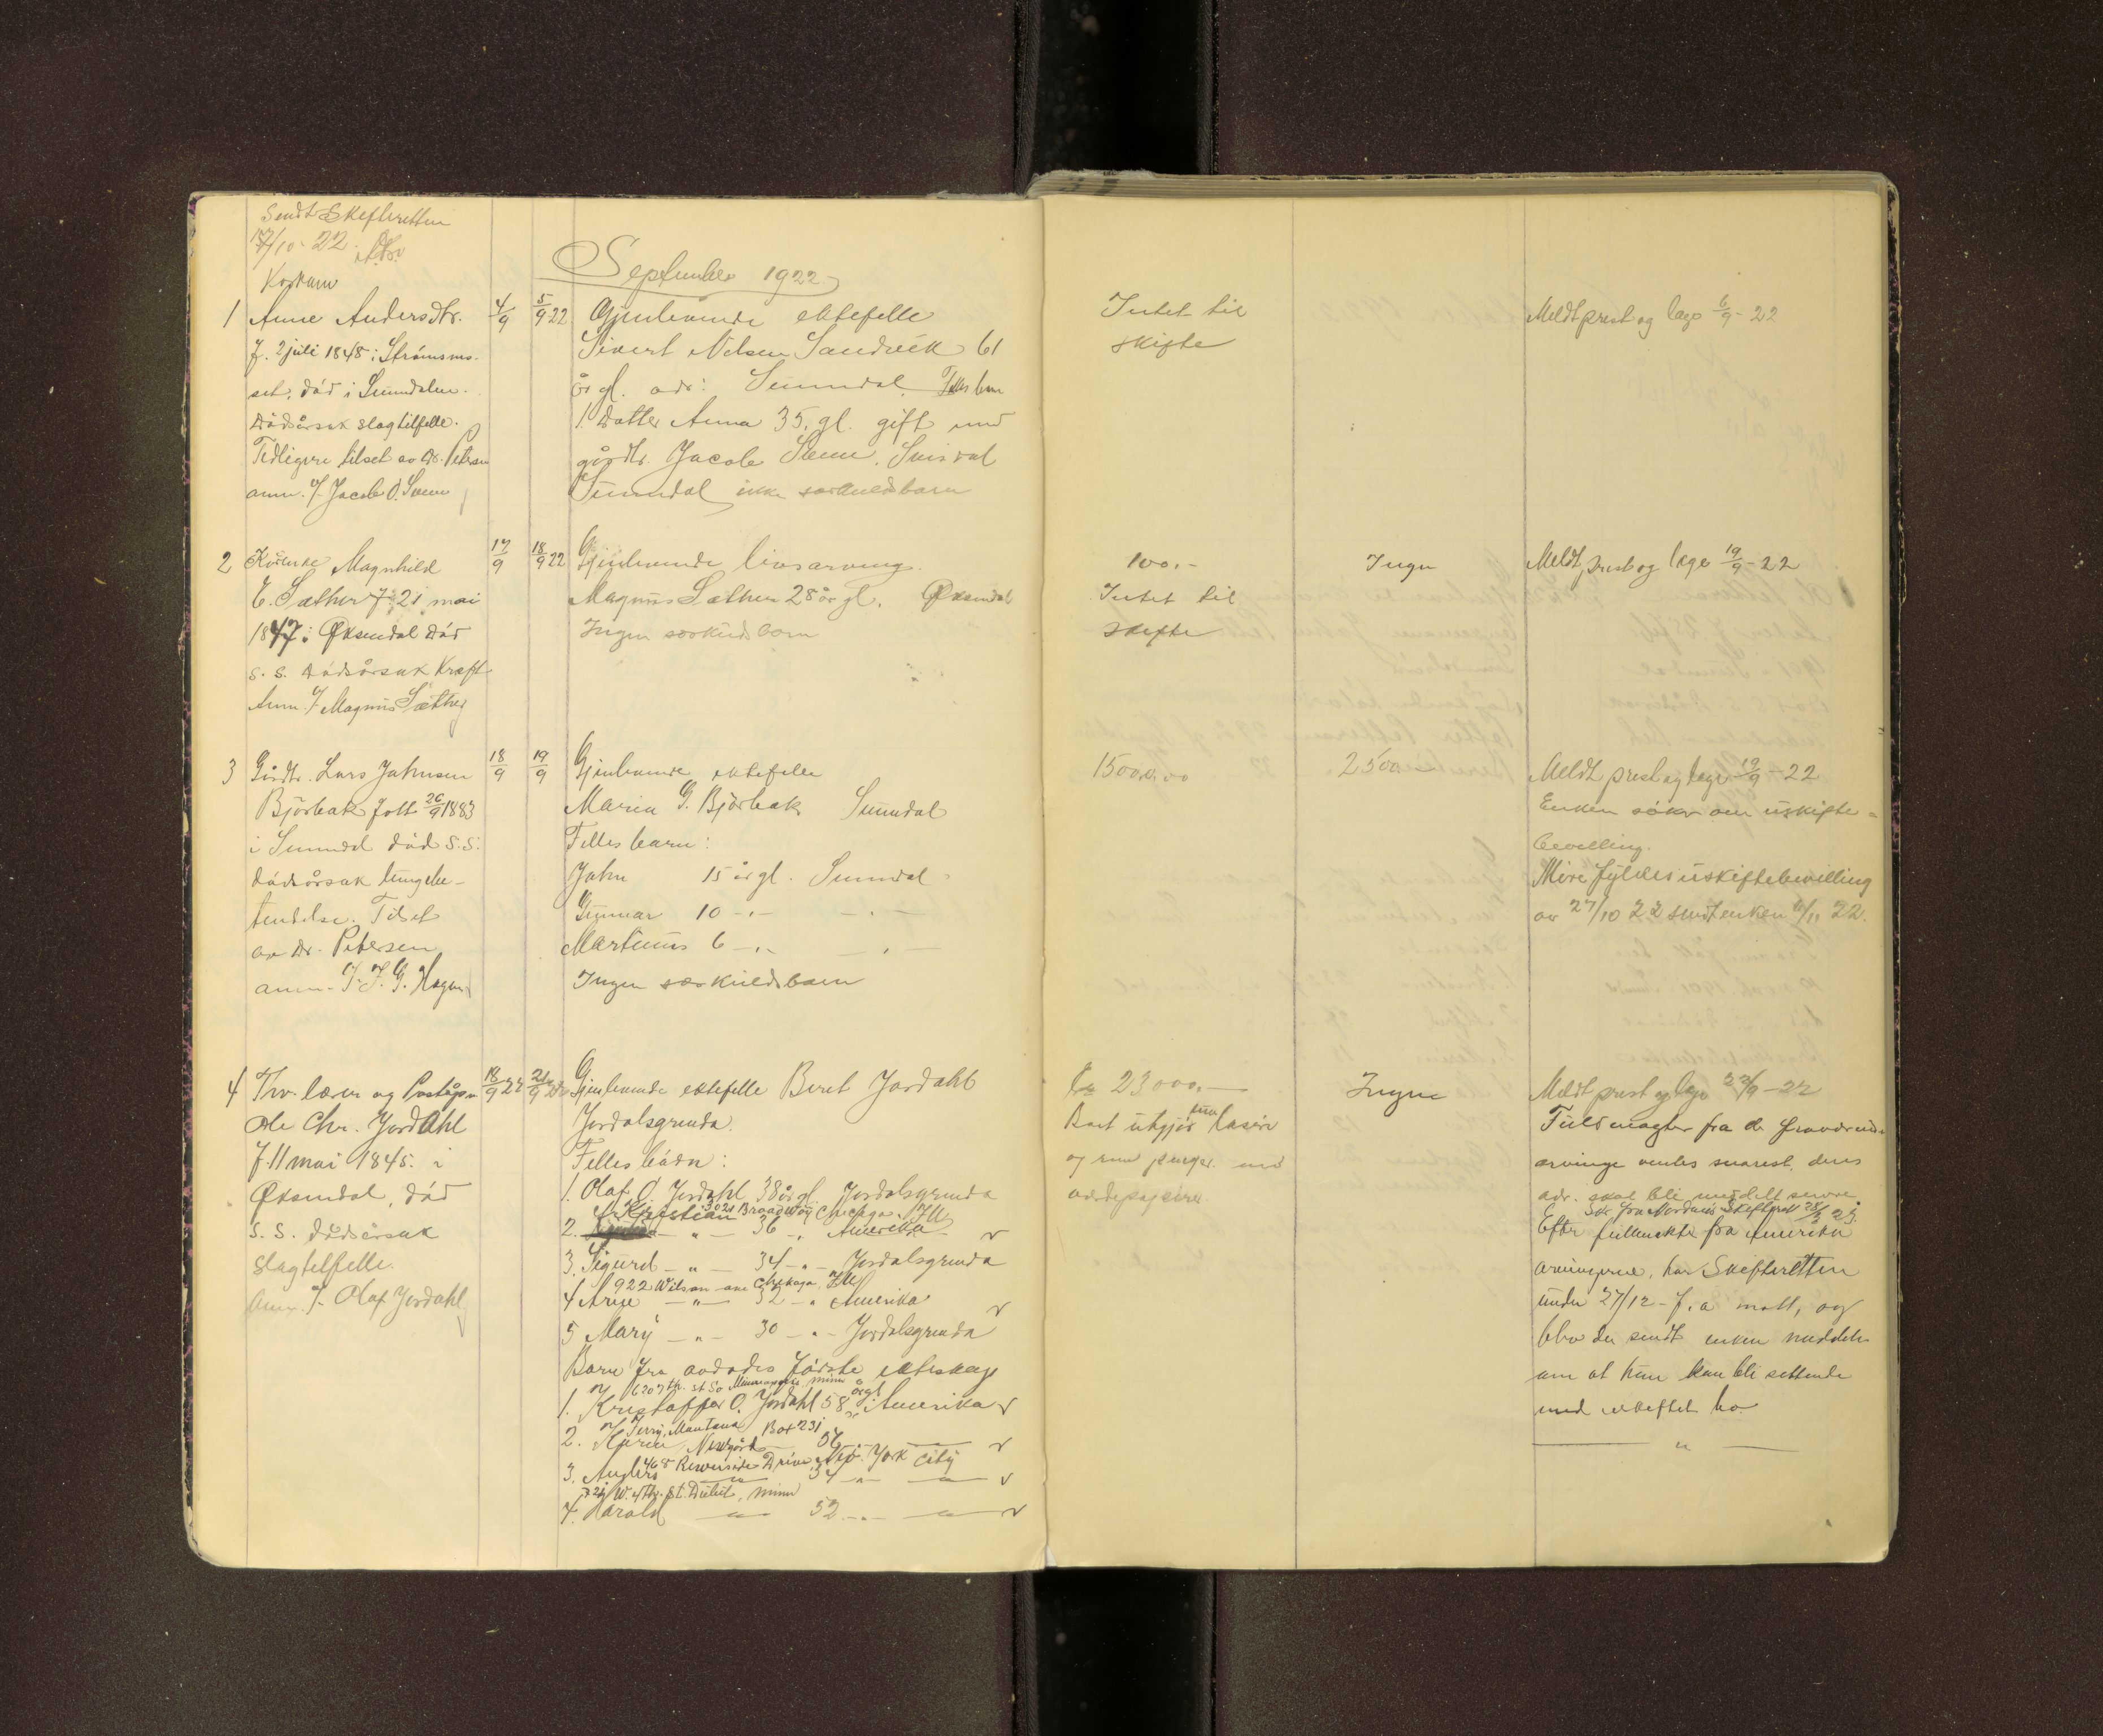 Sendt Skifteretten
17/10-22.
September 1922
1 Anne Andersdtr.
f. 2 juli 1848 i Strömsme-
set, död i Sunndalen.
Dödsårsak slagtilfelle.
Tidligere tilset av Dr. Petersen
anm. f. Jacob O. Svenn
4/9
5/9 22
Gjenlevende ektefelle
Sivert Nelsen Sandvik 61
år gl. adr: Sunndal. Felles barn
1. Datter Anna 35. gl. gift med
gårdbr. Jacob Svenn,
Sunndal ikke særkuldsbarn
Intet til
skifte
Meldt prest og læge 6/9-22
2 Magnhild
E. Sæther f. 21 mai
1847 i Øksendal död
s. s. Dödsårsak kræft
Anm. f. Magnus Sæther
17/9
18/9 22
Gjenlevende livsarving.
Magnus Sæther 28 år gl. Øksendal
Ingen særkuldsbarn
100.-
Intet til
skifte
Ingen
Meldt prest og læge 19/9-22
3 Gårdbr. Lars Jahnsen
Björbak født 26/9 1883
i Sunndal död s.s.
dödsårsak lungebe-
tendelse. Tilset
av Dr. Petersen
anm. f. J. G. Hagen
18/9
19/9
Gjenlevende ektefelle
Maria G. Björbak Sunndal
Felles barn:
Jahn 15 år gl. Sunndal
Gunnar 10 -"- -"-
Martinus 6 -"- -"-
Ingen særkuldsbarn
15000,00
2500
Meldt prest og læge 19/9-22
Enken søker om uskifte-
bevilling.
Møre fylkes uskiftebevilling
av 27/10 22 sendt enken 6/11 22.
4 Fhv. lærer og Poståpn.
Ole Chr. Jordahl
f. 11 mai 1845. i
Øksendal, död
s. s. dödsårsak
slagtilfelle.
Anm. f. Olaf Jordahl
18/9 22
21/9
Gjenlevende ektefelle Beret Jordahl
Jordalsgrenda.
Felles barn:
1. Olaf O. Jordahl 38 år gl. Jordalsgrenda
Kristian 3021 Broadway Chicago. Ill
2. -"- 36 -"- Amerika v
3. Sigurd -"- 34 -"- Jordalsgrenda
922 Wilson ave Chikago, Ill
4 Arne -"- 32 -"- Amerika v
5 Mary -"- 30 -"- Jordalsgrenda
Barn fra avdödes förste ekteskap
620 7th. st So Minneapolis minn
1. Kristoffer O. Jordahl 58 årgl. Amerika v
Terry, Montana Box 231
2. Karen Newgård 56 -"- v
468 Riverside Drive New York City
3. Anders -"- 54 -"- -"- v
721 W. 4th. st. Dulut, minn
4. Harald -"- 52 -"- -"- v
kr 23000,-
Boet utgjör
og penger. med
verdipapirer
Ingen
Meldt prest og læge 22/9-22
Fuldmagter fra de fraværende
arvinge ventes snarest. deres
adr. skal bli meddelt senere.
Skr. fra Nordmøre Skifterett
Efter fullmakter fra Amerika
arvingerne, har Skifteretten
under 27/12 - f. a mott, og
blev der sendt enken meddele
om at hun kan bli sittende
med uskiftet bo.
— " —